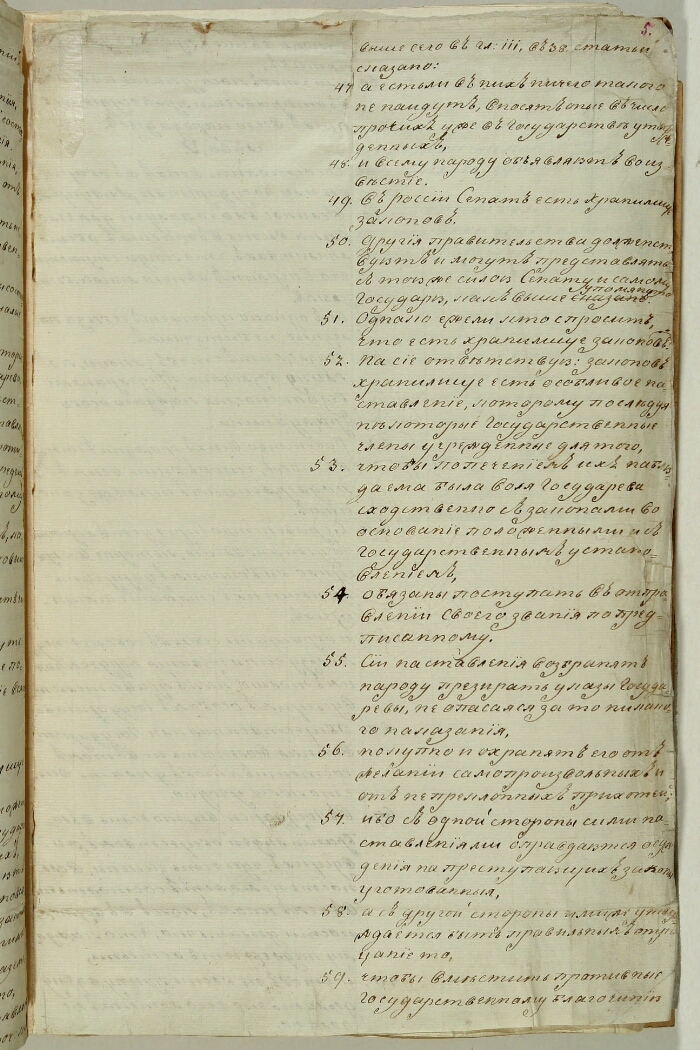 5.
выше сего въ гл: III, въ 38 статьи
сказано:
47. а естьли въ нихъ ничего такого
не найдутъ, вносятъ оные въ число
протчихъ уже въ государствѣ утвер
жденныхъ,
48. и всему народу объявляютъ во из
вѣстіе.
49. Въ россіи Сенатъ есть хранилище
законовъ.
50. Другія правительства долженст
вуютъ и могутъ представлять
съ тою же силою Сенату и самому
Государю, какъ выше упомянуто сказано.
51. Однако ежели кто спроситъ,
что есть хранилище законовъ:
52. На сіе отвѣтствую: законовъ
хранилище есть особливое на
ставленіе, которому послѣдуя
повторые Государственные
члены учрежденные для того,
53. чтобы попеченіемъ ихъ наблю
даема была воля Государева
сходственно съ законами во
основаніе положенными и съ
государственнымъ устано-
вленіемъ,
54. обязаны поступать въ отпра
вленіи своего званія по пред-
писанному.
55. Сіи наставленія возбранятъ
народу презирать указы Госуда
ревы, не опасаяся за то никако
го наказанія,
56. но купно и охранятъ его отъ
желаніи самопроизвольныхъ и
отъ непреклонныхъ прихотей:
57. ибо съ одной стороны сими на
ставленіями оправдаются осуж
денія на преступающихъ законы
уготованныя,
58. а съ другой стороны ими же утвер
ждается быть правильнымъ отри
цаніе то,
59. чтобы вмѣстить противные
государственному благочинію